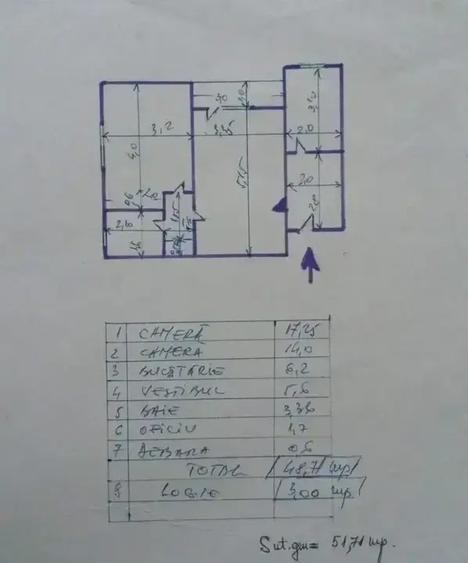 90
3,2
3,35
2,0
4,0
5,15
2,0
2,10
1 CAMERĂ 17,25
2 CAMERA 14,0
3 BUCĂTĂRIE 6,2
4 VESTIBUL 5,6
5 BAIE 3,36
6 OFICIU 1,7
7 DEBARA 0,6
TOTAL 48,71 mp
8 LOGIE 3,00 mp.
Sut.gm= 51,71 mp.